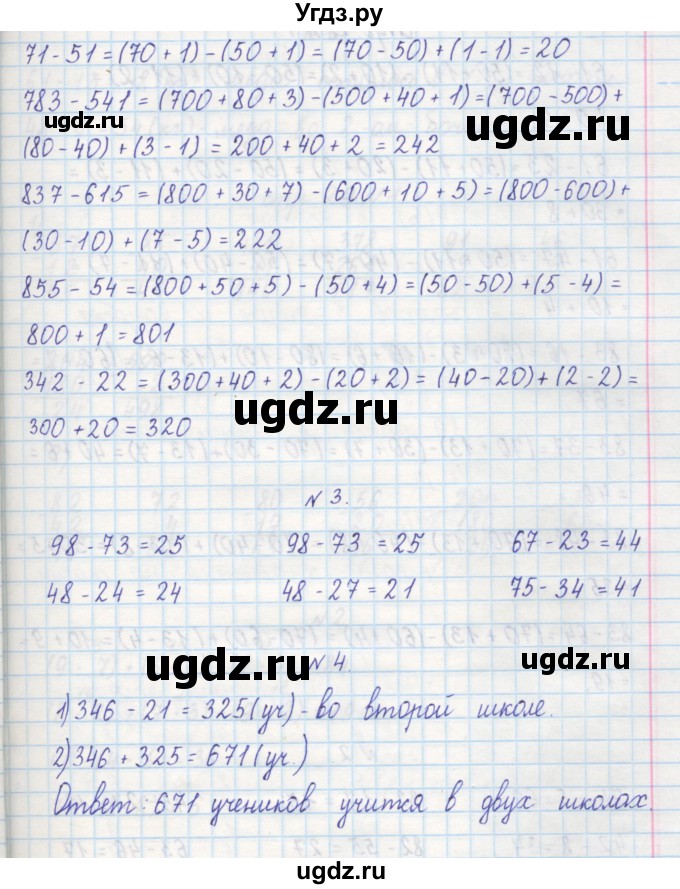 Угдз.ру
71 - 51 = (70 + 1) - (50 + 1) = (70 - 50) + (1 - 1) = 20
783 - 541 = (700 + 80 + 3) - (500 + 40 + 1) = (700 - 500) +
ugdz.ru
ugdz.ru
(80 - 40) + (3 - 1) = 200 + 40 + 2 = 242
837 - 615 = (800 + 30 + 7) - (600 + 10 + 5) = (800 - 600) +
(30 - 10) + (7 - 5) = 222
855 - 54 = (800 + 50 + 5) - (50 + 4) = (50 - 50) + (5 - 4) =
800 + 1 = 801
342 - 22 = (300 + 40 + 2) - (20 + 2) = (40 - 20) + (2 - 2) =
ugdz.ru
300 + 20 = 320
N 3.
98 - 73 = 25 98 - 73 = 25 67 - 23 = 44
48 - 24 = 24 48 - 27 = 21 75 - 34 = 41
ugdz.ru
ugdz.ru
N 4.
1) 346 - 21 = 325 (уч) - во второй школе.
2) 346 + 325 = 671 (уч.)
Ответ: 671 учеников учится в двух школах.
ugdz.ru